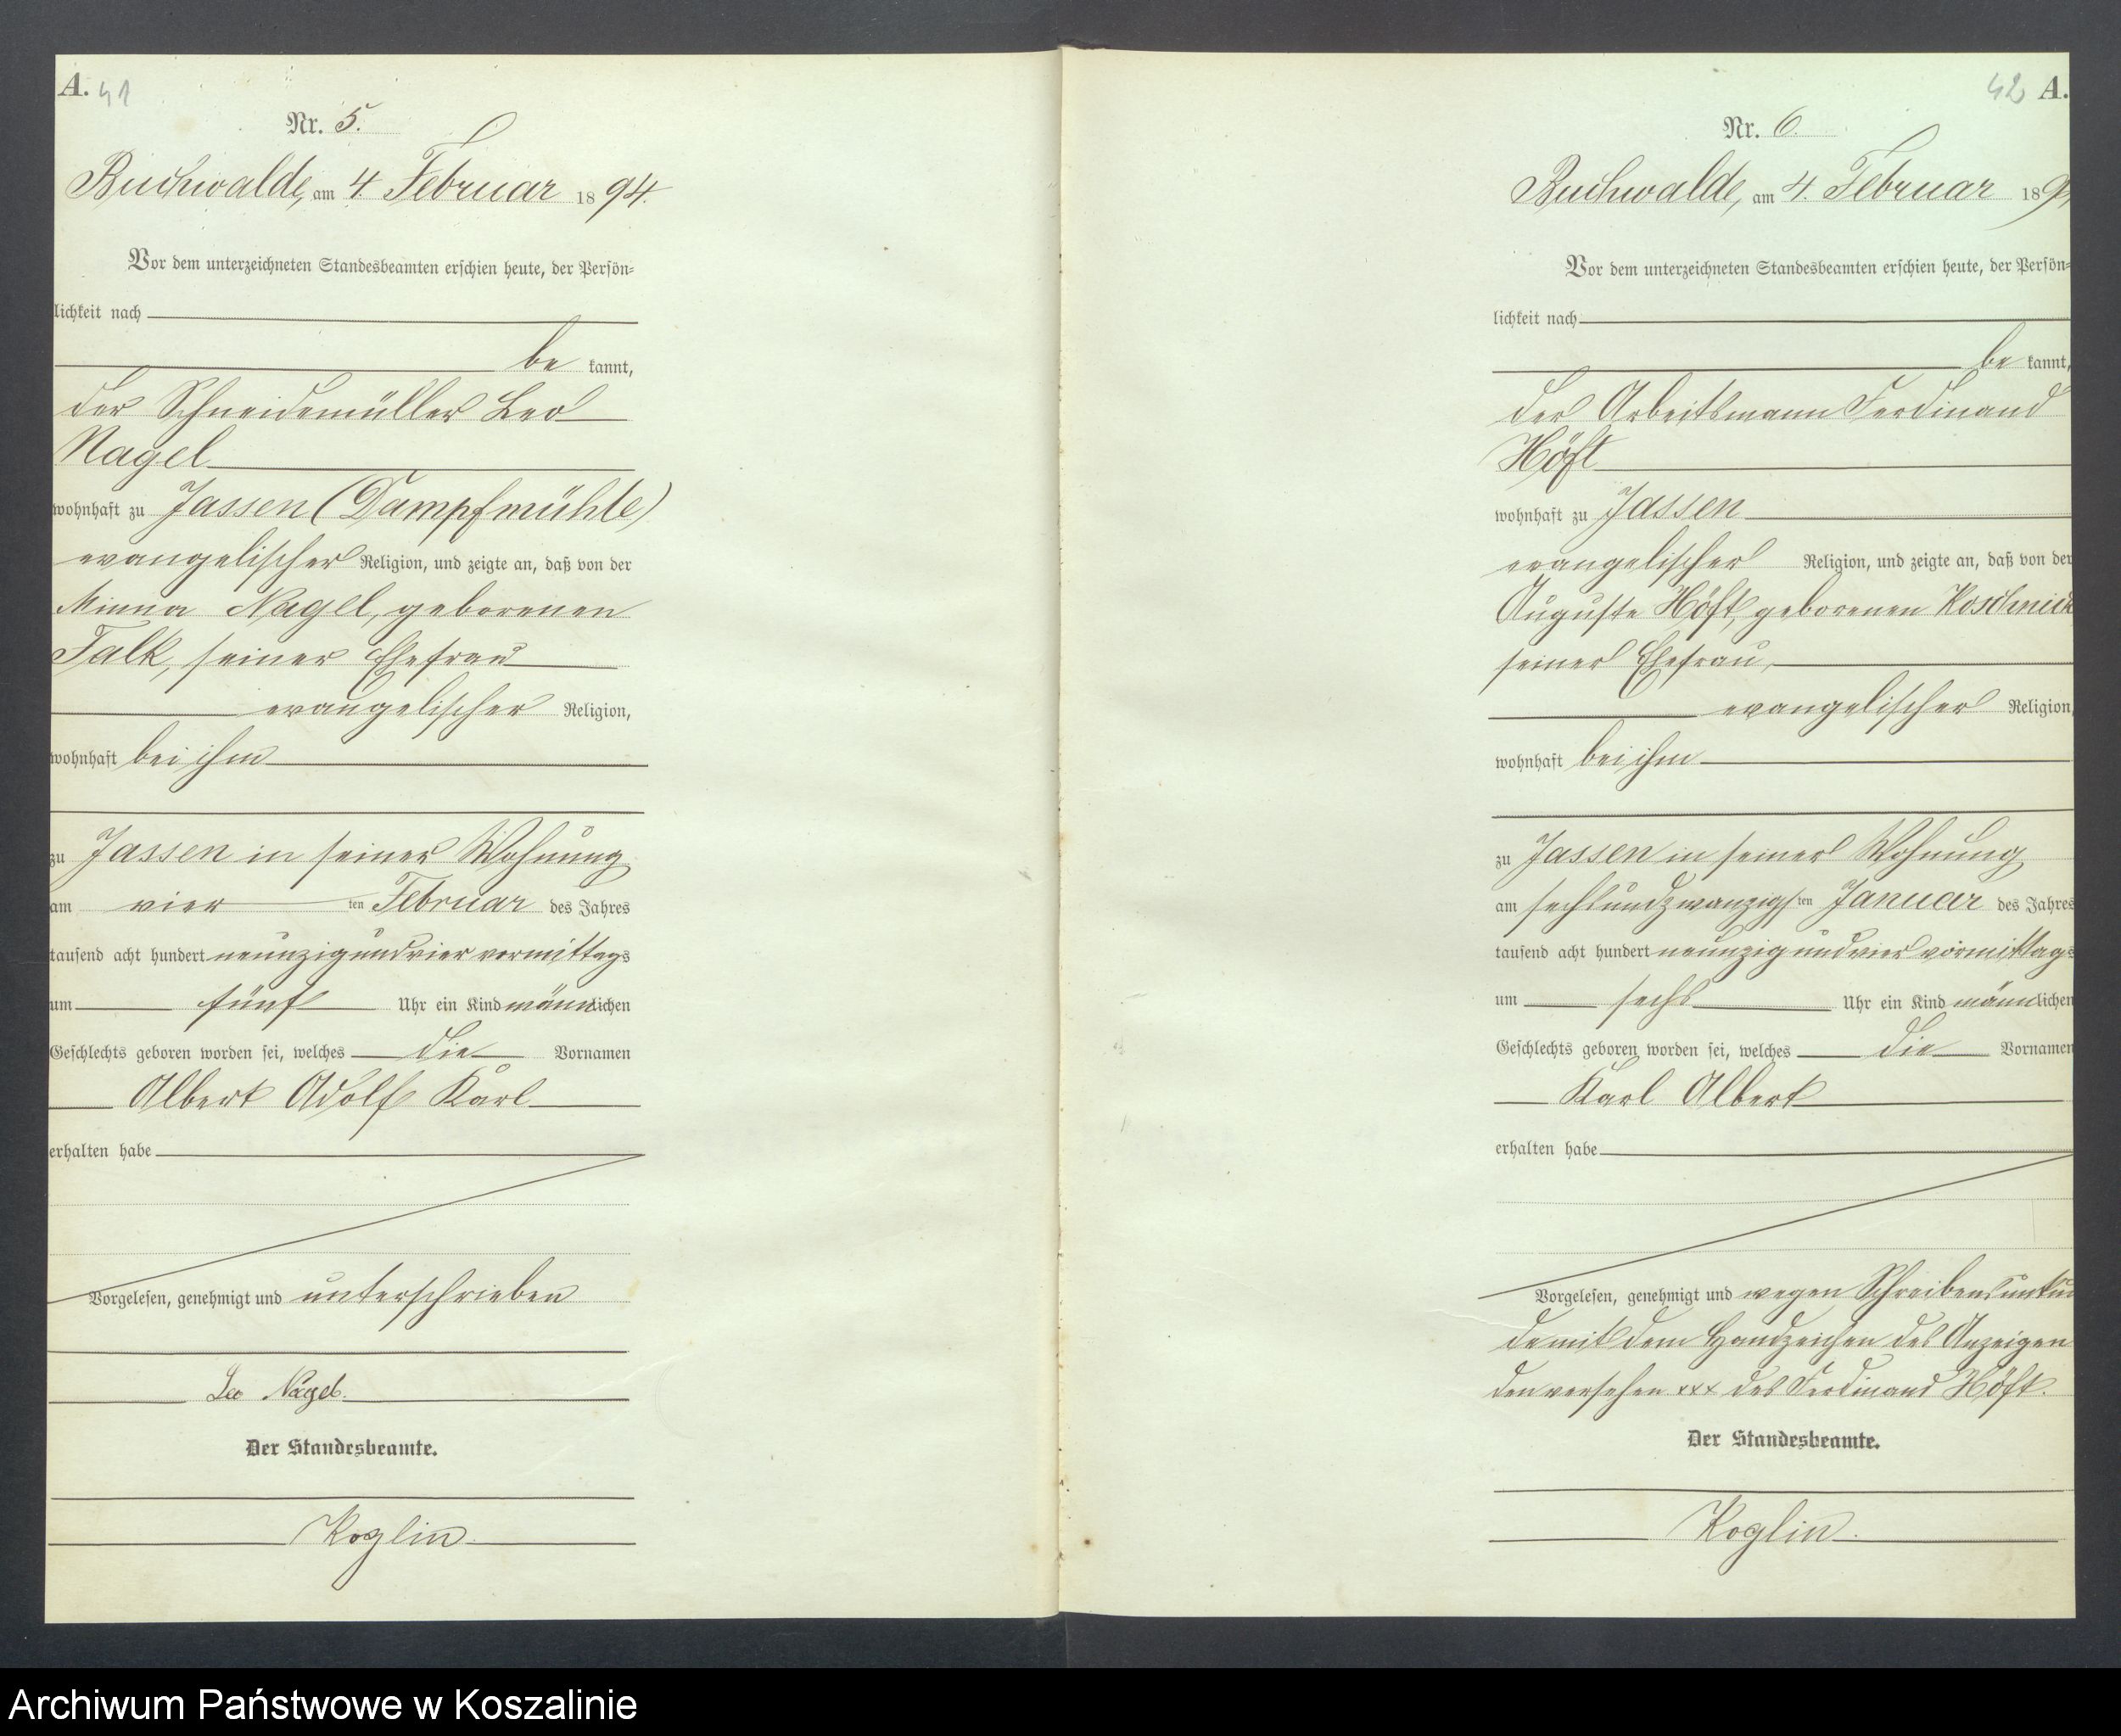 A. 41
Nr. 5.
Buchwalde, am 4. Februar 1894.
Vor dem unterzeichneten Standesbeamten erschien heute, der Persön=
lichkeit nach
be kannt,
der Schneidemüller Leo
Nagel
wohnhaft zu Jassen (Dampfmühle)
evangelischer Religion, und zeigte an, daß von der
Minna Nagel, geborenen
Falk, seiner Ehefrau
evangelischer Religion,
wohnhaft bei ihm
zu Jassen in seiner Wohnung
am vier ten Februar des Jahres
tausend acht hundert neunzig und vier vormittags
um fünf Uhr ein Kind männlichen
Geschlechts geboren worden sei, welches die Vornamen
Albert Adolf Karl
erhalten habe
Vorgelesen, genehmigt und unterschrieben
Leo Nagel.
Der Standesbeamte.
Koglin.
42 A.
Nr. 6.
Buchwalde, am 4. Februar 189
Vor dem unterzeichneten Standesbeamten erschien heute, der Persön=
lichkeit nach
be kannt,
der Arbeitsmann Ferdinand
Höft
wohnhaft zu Jassen
evangelischer Religion, und zeigte an, daß von der
Auguste Höft, geborenen Koschnick
seiner Ehefrau,
evangelischer Religion,
wohnhaft bei ihm
zu Jassen in seiner Wohnung
am sechsundzwanzigsten Januar des Jahres
tausend acht hundert neunzig und vier vormittags
um sechs Uhr ein Kind männlichen
Geschlechts geboren worden sei, welches die Vornamen
Karl Albert
erhalten habe
Vorgelesen, genehmigt und wegen Schreibensunkun
de mit dem Handzeichen des Anzeigen
den versehen xxx des Ferdinand Höft.
Der Standesbeamte.
Koglin.
Archiwum Państwowe w Koszalinie